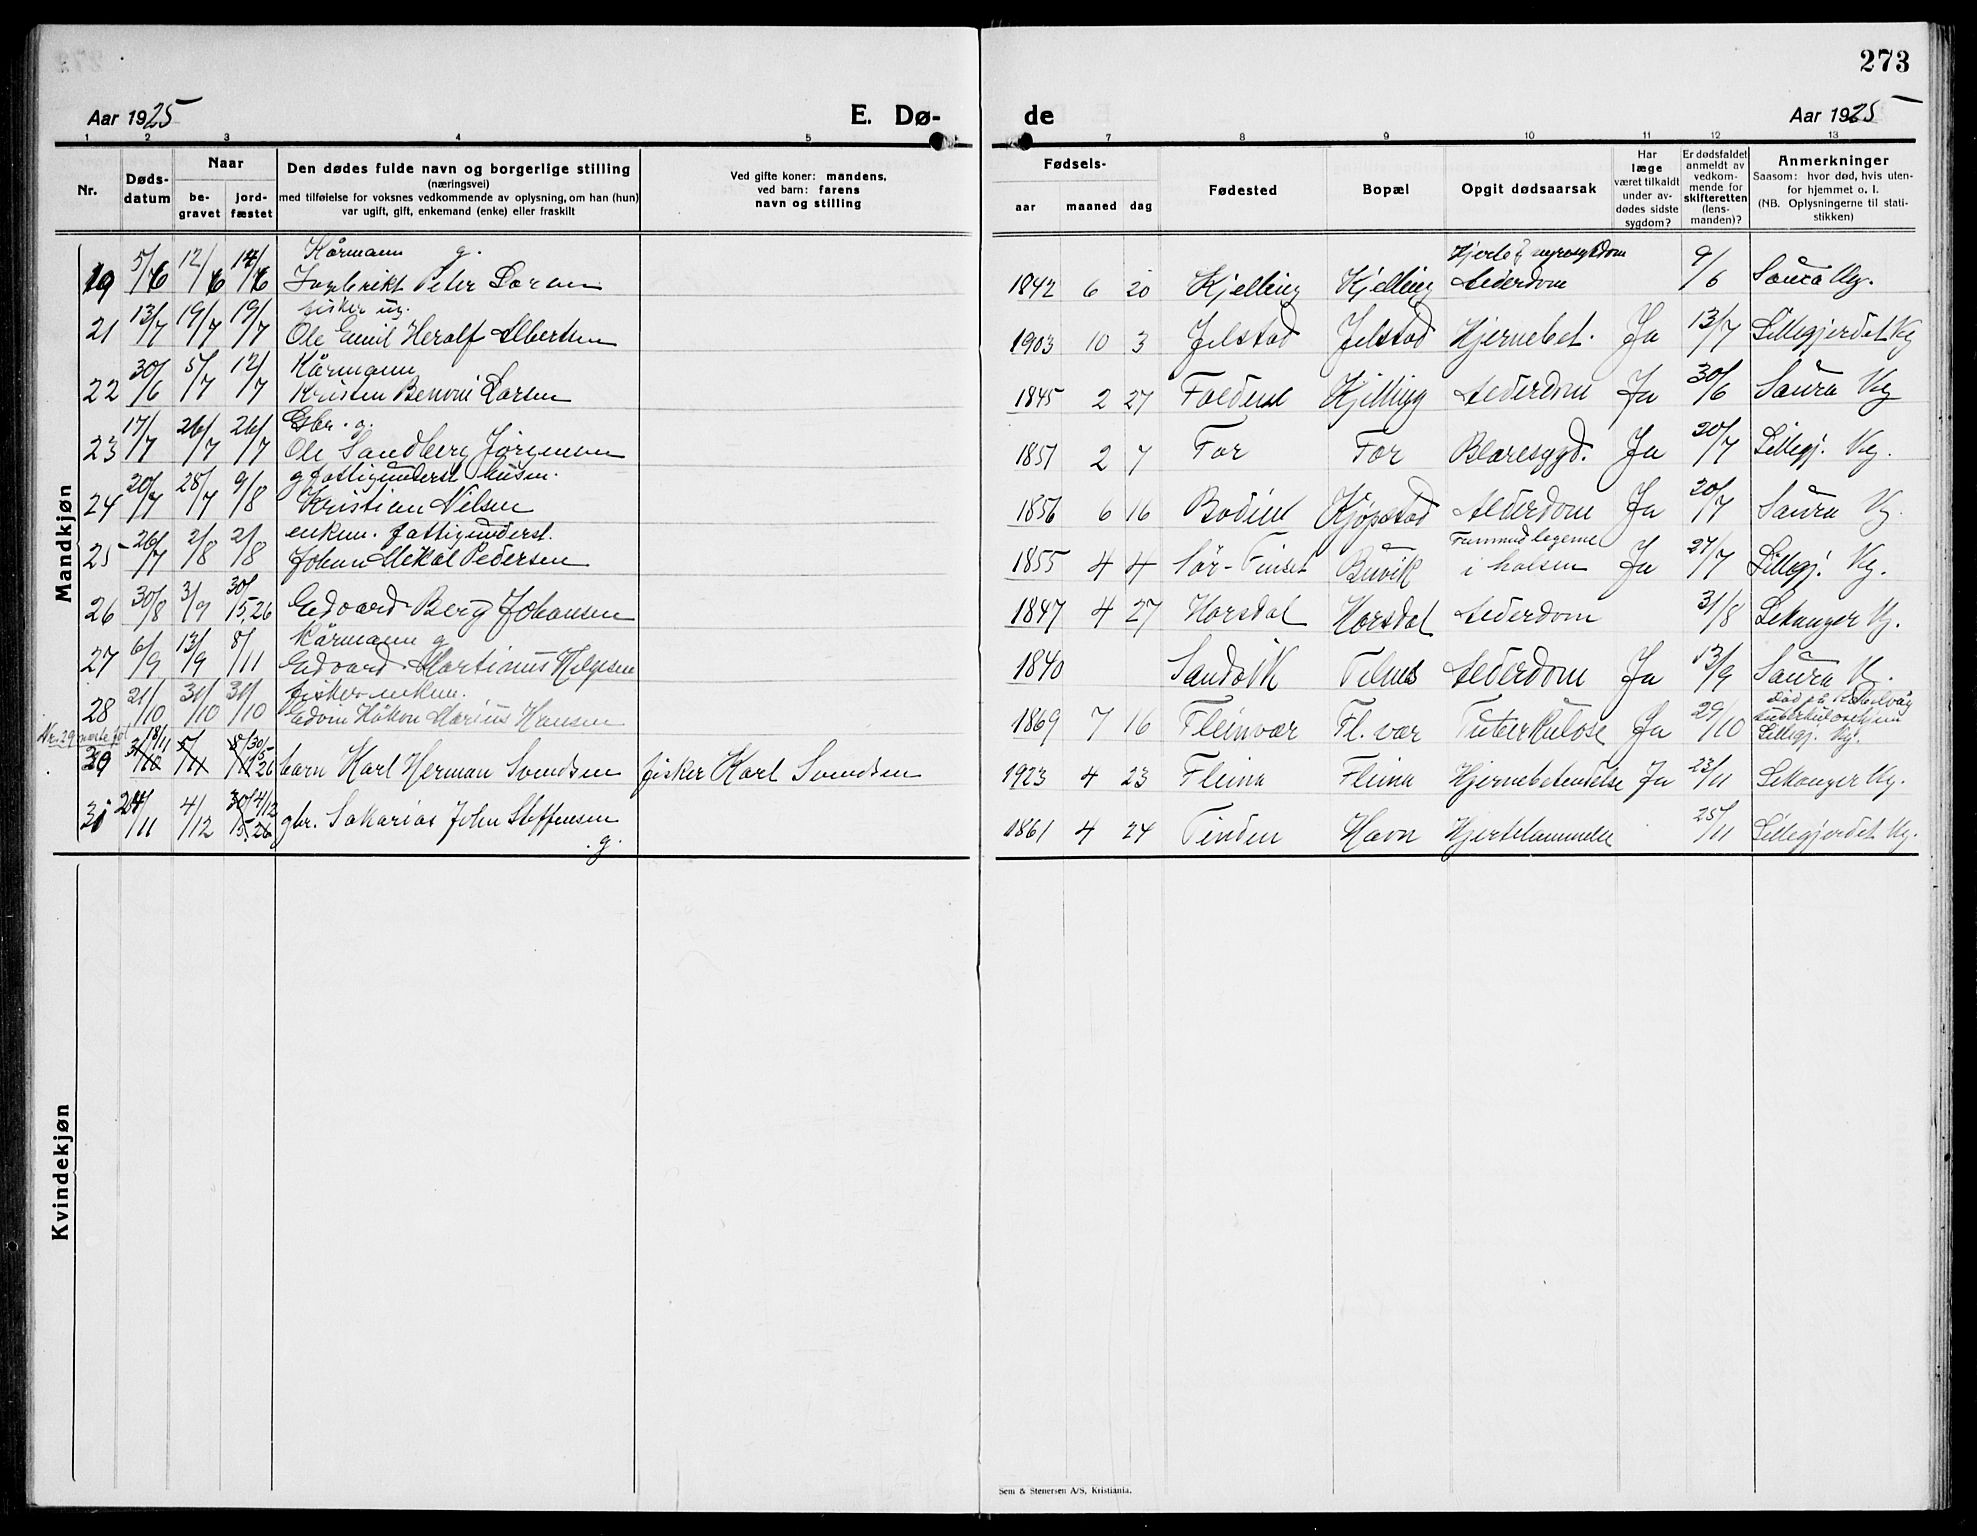 273
Aar 1925
E. Dø-
de
Aar 1925
1 2 3 4 5 7 8 9 10 11 12 13
Nr.
Døds-
datum
Naar
be-
gravet
jord-
fæstet
Den dødes fulde navn og borgerlige stilling
(næringsvei)
med tilføielse for voksnes vedkommende av oplysning, om han (hun)
var ugift, gift, enkemand (enke) eller fraskilt
Ved gifte koner: mandens,
ved barn: farens
navn og stilling
Fødsels-
aar maaned dag
Fødested
Bopæl
Opgit dødsaarsak
Har
læge
været tilkaldt
under av-
dødes sidste
sygdom?
Er dødsfaldet
anmeldt av
vedkom-
mende for
skifteretten
(lens-
manden)?
Anmerkninger
Saasom: hvor død, hvis uten-
for hjemmet o. l.
(NB. Oplysningerne til stati-
stikken)
Mandkjøn
Kårmann g.
19 5/6 12/6 14/6 Ingebrikt Peter 1842 6 20 Kjelling Kjelling Alderdom 9/6 Saura Kg.
fisker ug.
21 13/7 19/7 19/7 Ole Emil Heralf Albertsen 1903 10 3 Jelstad Jelstad Hjernebet. Ja 13/7 Lillegjerdet Kg
Kårmann
22 30/6 5/7 12/7 Kristen Benoni Larsen 1845 2 27 Kjelling Alderdom Ja 30/6 Saura Kg
Gbr. g.
23 17/7 26/7 26/7 Ole Sandberg Jørgensen 1857 2 7 For For Blæresygd. Ja 20/7 Lillegj. Kg.
g fattigunderst. husm.
24 20/7 28/7 9/8 Kristian Nilsen 1856 6 16 Bodin Kjøpstad Alderdom Ja 20/7 Saura Kg.
enkem. fattigunderst.
25 26/7 2/8 2/8 Johan Mikal Pedersen 1855 4 4 Sør-Finset Buvik i halsen Ja 27/7 Lillegj. Kg.
26 30/8 3/9 30/5.26 Edvard Berg Johansen 1847 4 27 Horsdal Horsdal Alderdom 31/8 Lekanger Kg.
Kårmann g
27 6/9 13/9 8/11 Edvard Martinus Helgesen 1840 Sandvik Felnes Alderdom Ja 13/9 Saura K.
fisker enkem.
28 21/10 31/10 31/10 Edvin Håkon Marius Hansen 1869 7 16 Fleinvær Fl. vær Tuberkulose Ja 29/10 Lillegj. Kg.
29 18/11 30/5 26 barn Karl Herman Svendsen fisker Karl Svendsen 1923 4 23 Fleina Fleina Hjernebetendelse Ja 23/11 Lekanger Kg.
31 24/11 4/12 4/12 gbr. Sakarias John Steffensen 1861 4 24 Tinden Havn Hjertelammelse 25/11 Lillegjerdet Kg.
g.
Kvindekjøn
Sem & Stenersen A/S, Kristiania.